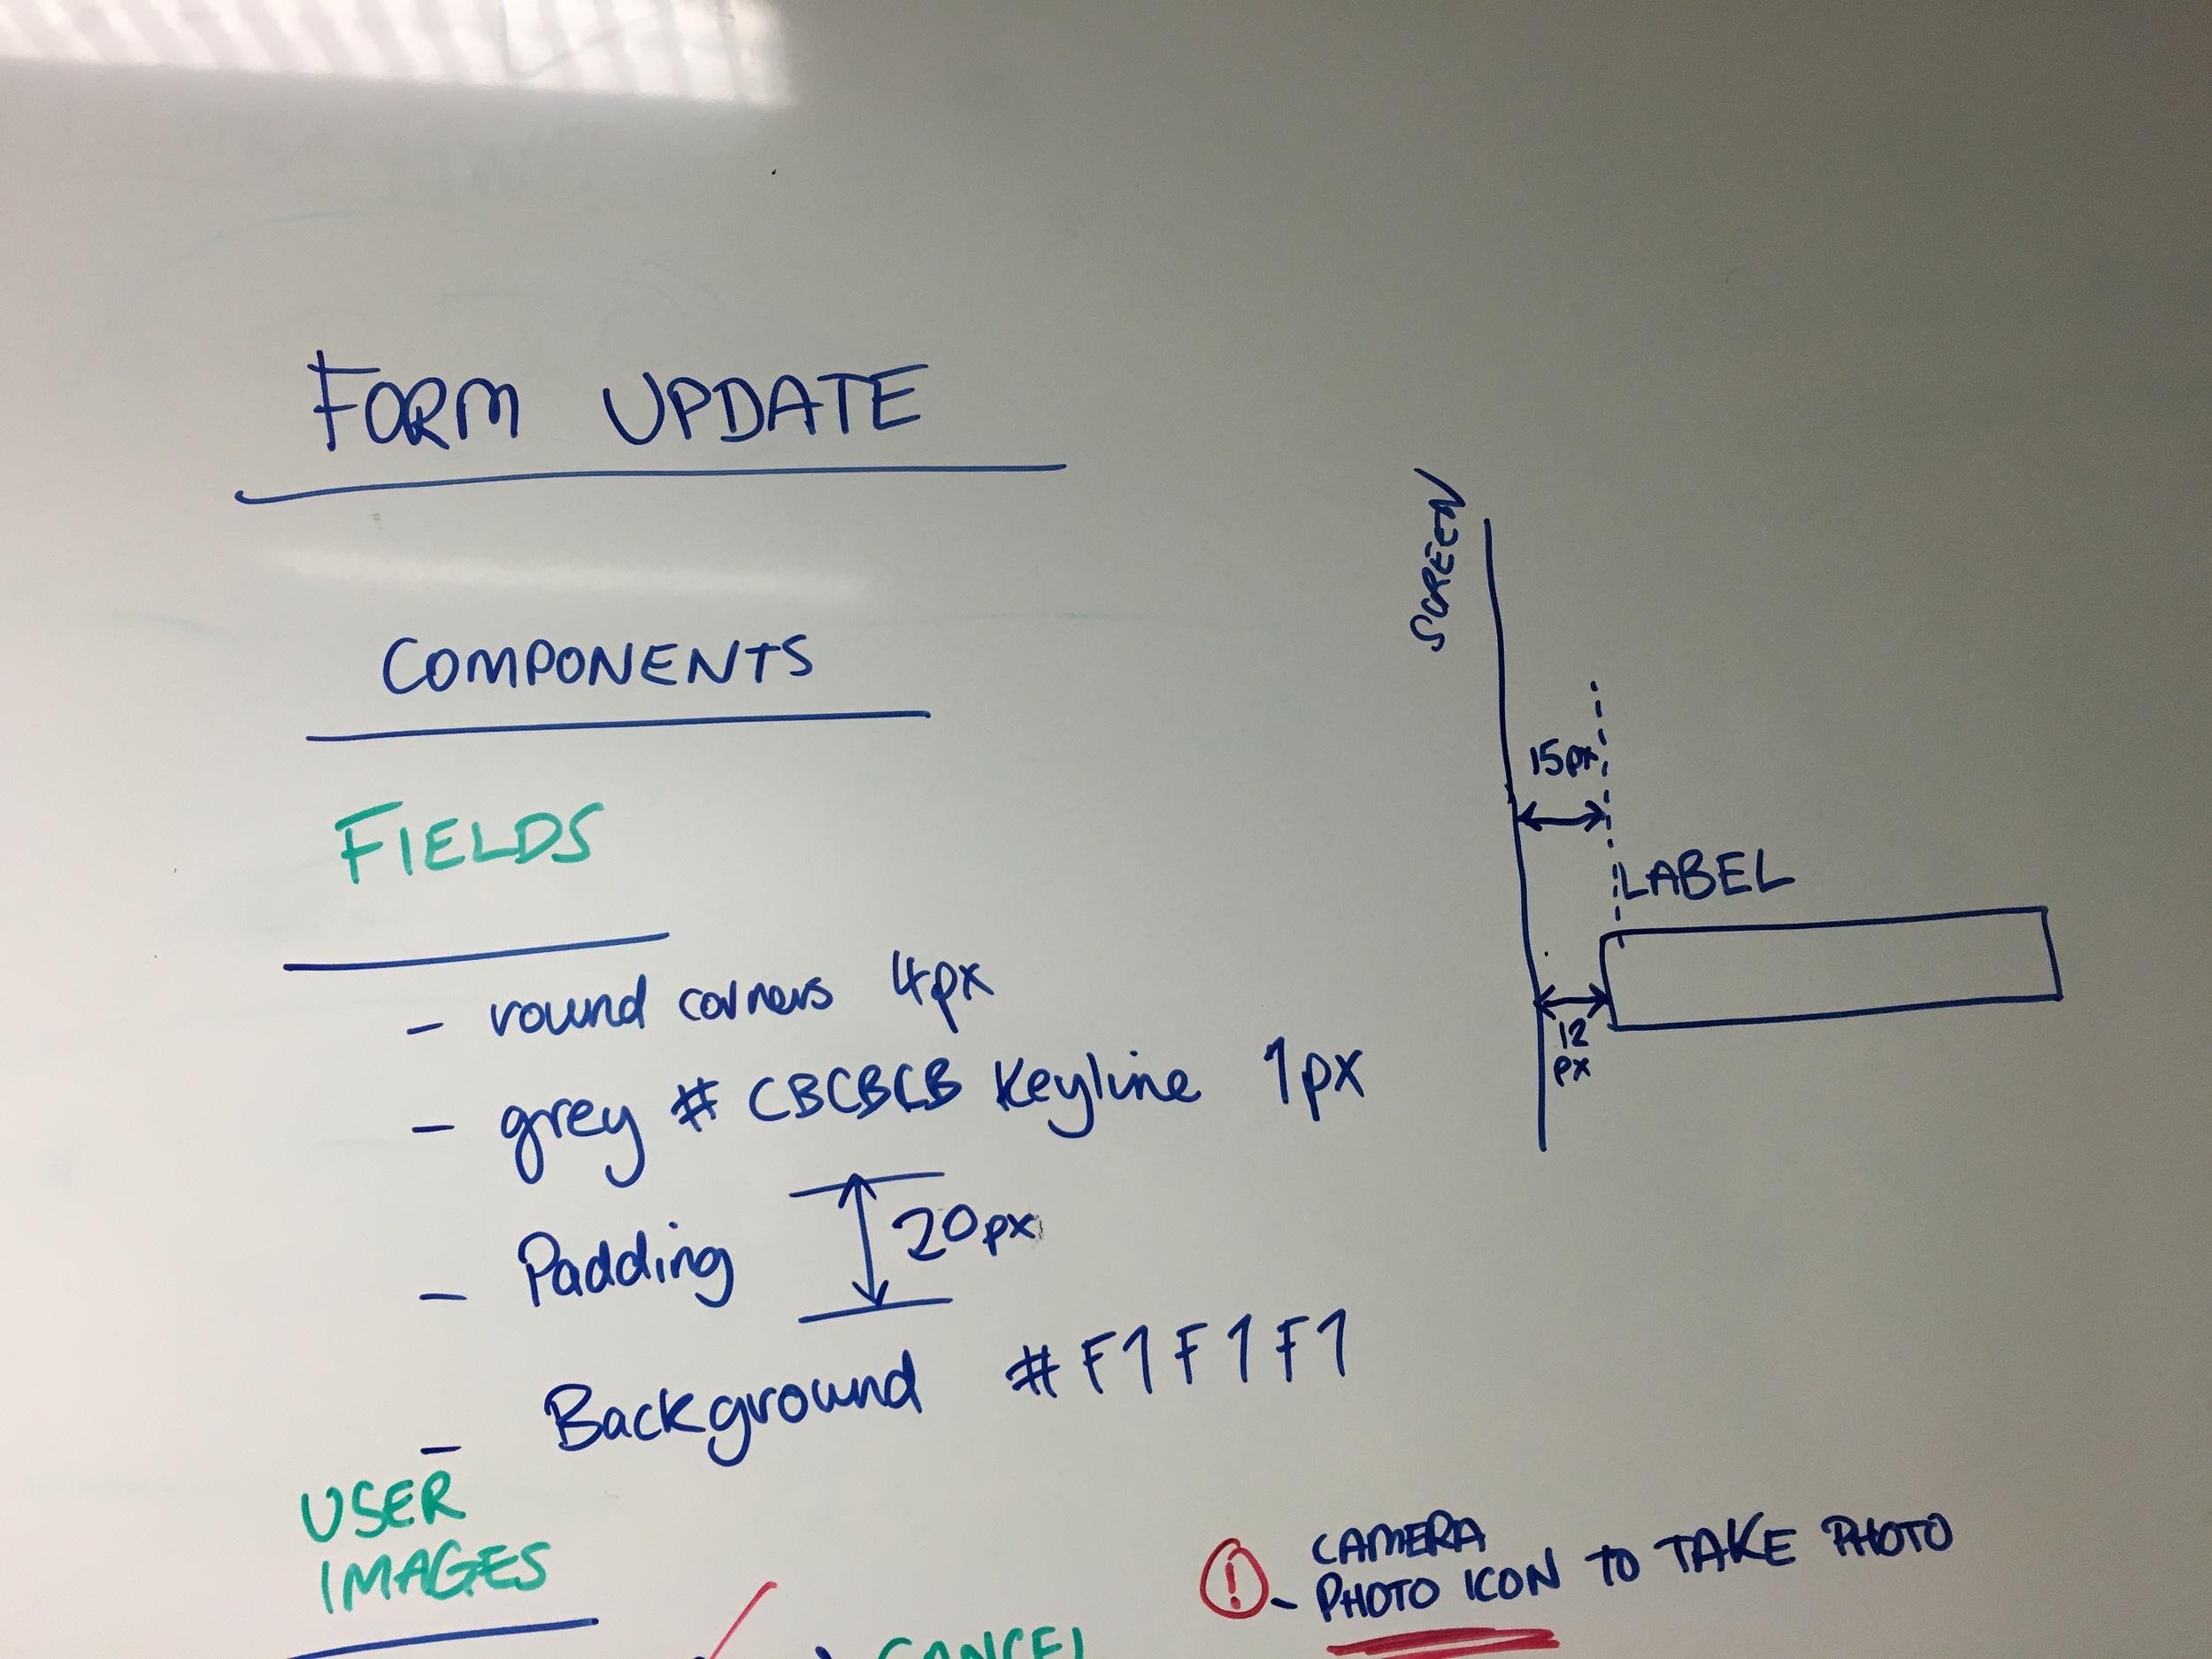 FORM UPDATE
COMPONENTS
FIELDS
- round corners 4px
- grey # CBCBCB Keyline 1px
- Padding 20px
- Background #F1F1F1
SCREEN
15px
LABEL
12
px
USER
IMAGES
CANCEL
! - CAMERA
PHOTO ICON TO TAKE PHOTO